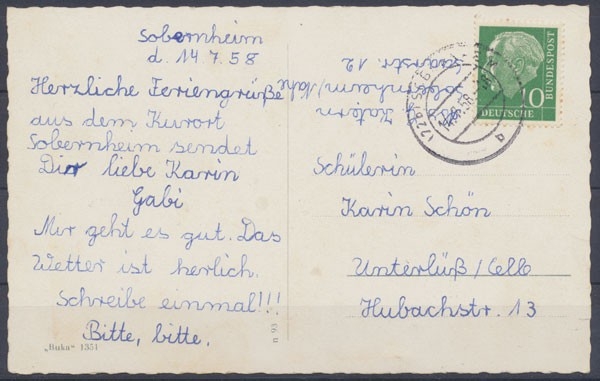 Sobernheim
d. 14.7.58
Herzliche Feriengrüße
aus dem Kurort
Sobernheim sendet
Dir liebe Karin
Gabi
Mir geht es gut. Das
Wetter ist herlich.
Schreibe einmal!!!
Bitte, bitte.
„Ruka“ 1351
n 93
Sobernheim/Nahe
12
10
DEUTSCHE
BUNDESPOST
Schülerin
Karin Schön
Unterlüß/Celle
Hubachstr. 13